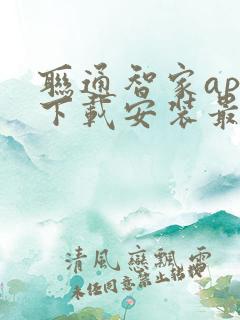 聯通智家ap
下載安裝最
清風戀飄雪
未经同意禁止转载